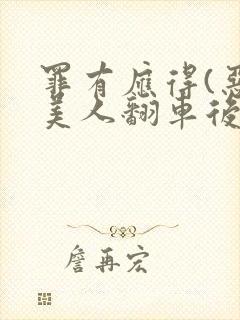 罪有應得(惡
美人翻車後
詹再宏